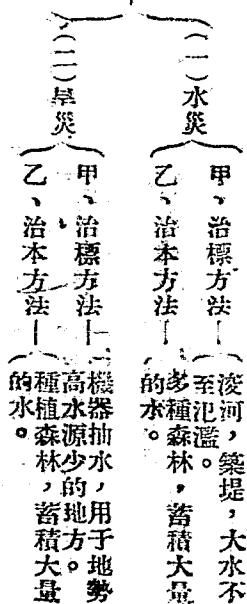 (一)水災
甲、治標方法—
浚河，築堤，大水不
至氾濫。
乙、治本方法—
多種森林，蓄積大量
的水。
(二)旱災
甲、治標方法—
機器抽水，用于地勢
高水源少的地方。
乙、治本方法—
種植森林，蓄積大量
的水。